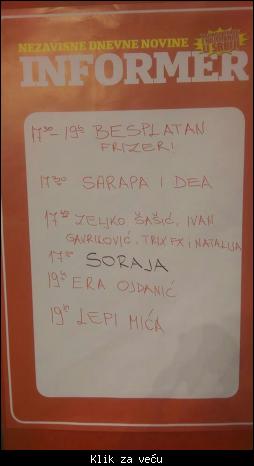 NEZAVISNE DNEVNE NOVINE
INFORMER
17³⁰-19⁴⁵ BESPLATAN
FRIZERI
17³⁰ SARAPA I DEA
ŽELJKO ŠAŠIĆ, IVAN
GAVRILOVIĆ, TRIX FX I NATALIJA
SORAJA
ERA OJDANIĆ
LEPI MIĆA
Klik za veću